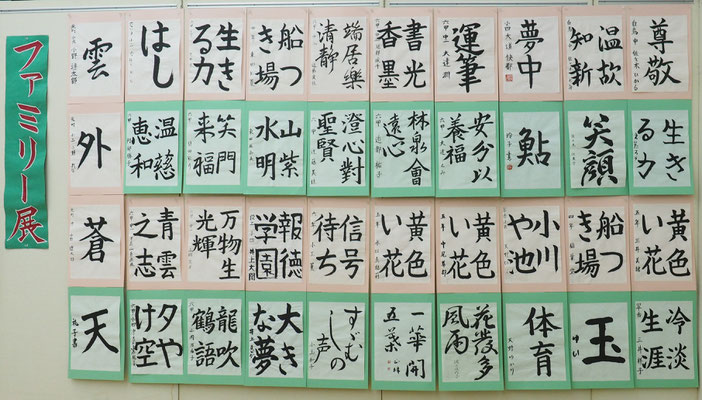 ファミリー展
尊敬
温故
知新
夢中
運筆
書光
香墨
端居樂
清静
船つ
き場
生き
る力
はし
雲
生き
る力
笑顔
鮎
安分以
養福
林泉會
遠心
澄心對
聖賢
山紫
水明
笑門
来福
温慈
恵和
外
黄色
い花
船つ
き場
小川
や池
黄色
い花
黄色
い花
信号
待ち
報徳
学園
万物生
光輝
青雲
之志
蒼
冷淡
生涯
玉
体育
花發多
風雨
一華開
五葉
すゞむ
しの声
大き
な夢
龍吹
鶴語
夕や
け空
天